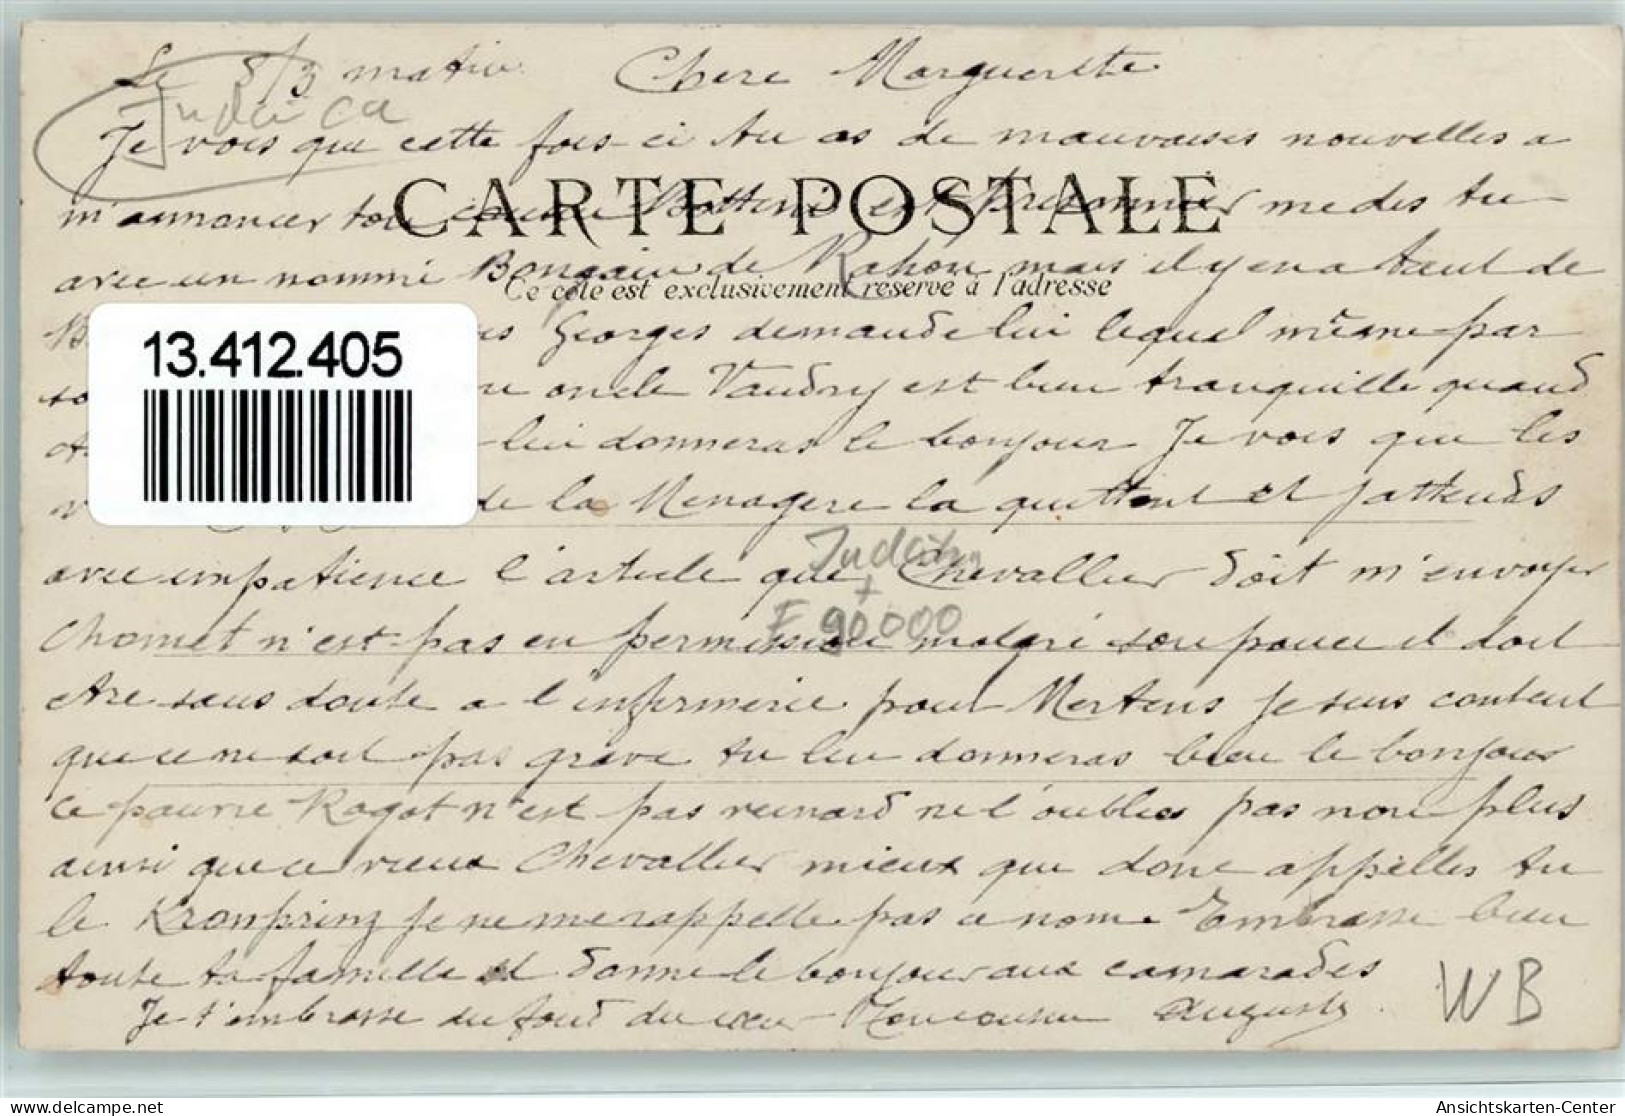 Le 5/3 matin Chere Marguerite
Judaica
Je vois que cette fois-ci tu as de mauvaises nouvelles a
m'annoncer ton est me dis tu
CARTE POSTALE
avec un nommé de Rahon mais il y en a tant de
Ce côté est exclusivement réservé à l'adresse
Georges demande lui lequel même par
13.412.405
oncle Vaudry est bien tranquille quand
lui donneras le bonjour Je vois que les
de la Menagere la quittent et j'attends
Judaica
avec impatience l'article que Chevallier doit m'envoyer
+
F 90000
Chomet n'est pas en permission malgré son pouce il doit
etre sans doute a l'infirmerie pour Mertens je suis content
que ce ne soit pas grave tu lui donneras bien le bonjour
ce pauvre Ragot n'est pas veinard ne l'oublies pas non plus
ainsi que ce vieux Chevallier mieux que donc appelles tu
le Kronprinz je ne me rappelle pas ce nom. Embrasse bien
toute ta famille et donne le bonjour aux camarades
Je t'embrasse du fond du cœur Ton cousin Auguste.
WB
Ansichtskarten-Center
delcampe.net